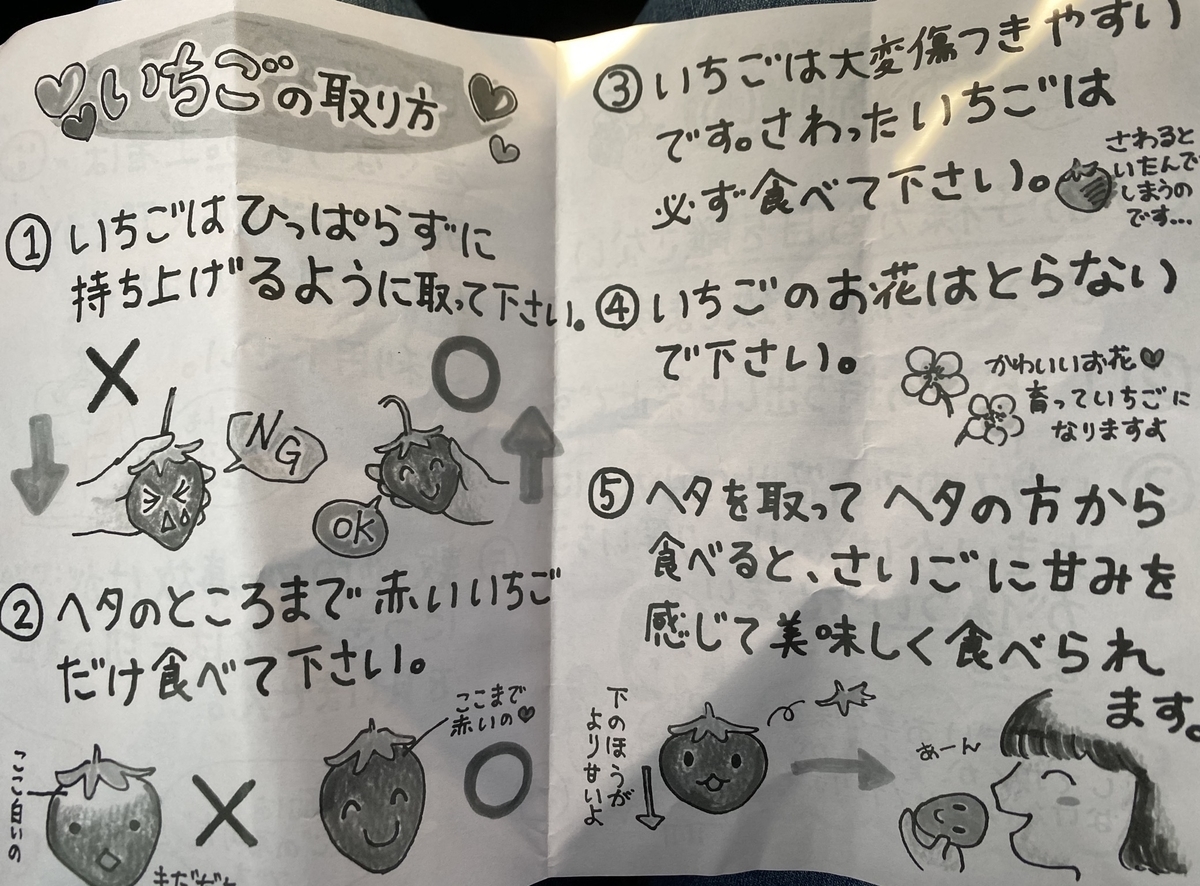 いちごの取り方
① いちごはひっぱらずに
持ち上げるように取って下さい。
NG
OK
② ヘタのところまで赤いいちご
だけ食べて下さい。
ここ白いの
ここまで
赤いの♡
③ いちごは大変傷つきやすい
です。さわったいちごは
必ず食べて下さい。
さわると
いたんで
しまうの
です…
④ いちごのお花はとらない
で下さい。
かわいいお花♡
育っていちごに
なりますよ
⑤ ヘタを取って ヘタの方から
食べると、さいごに甘みを
感じて美味しく食べられ
ます。
下のほうが
より甘いよ
あーん